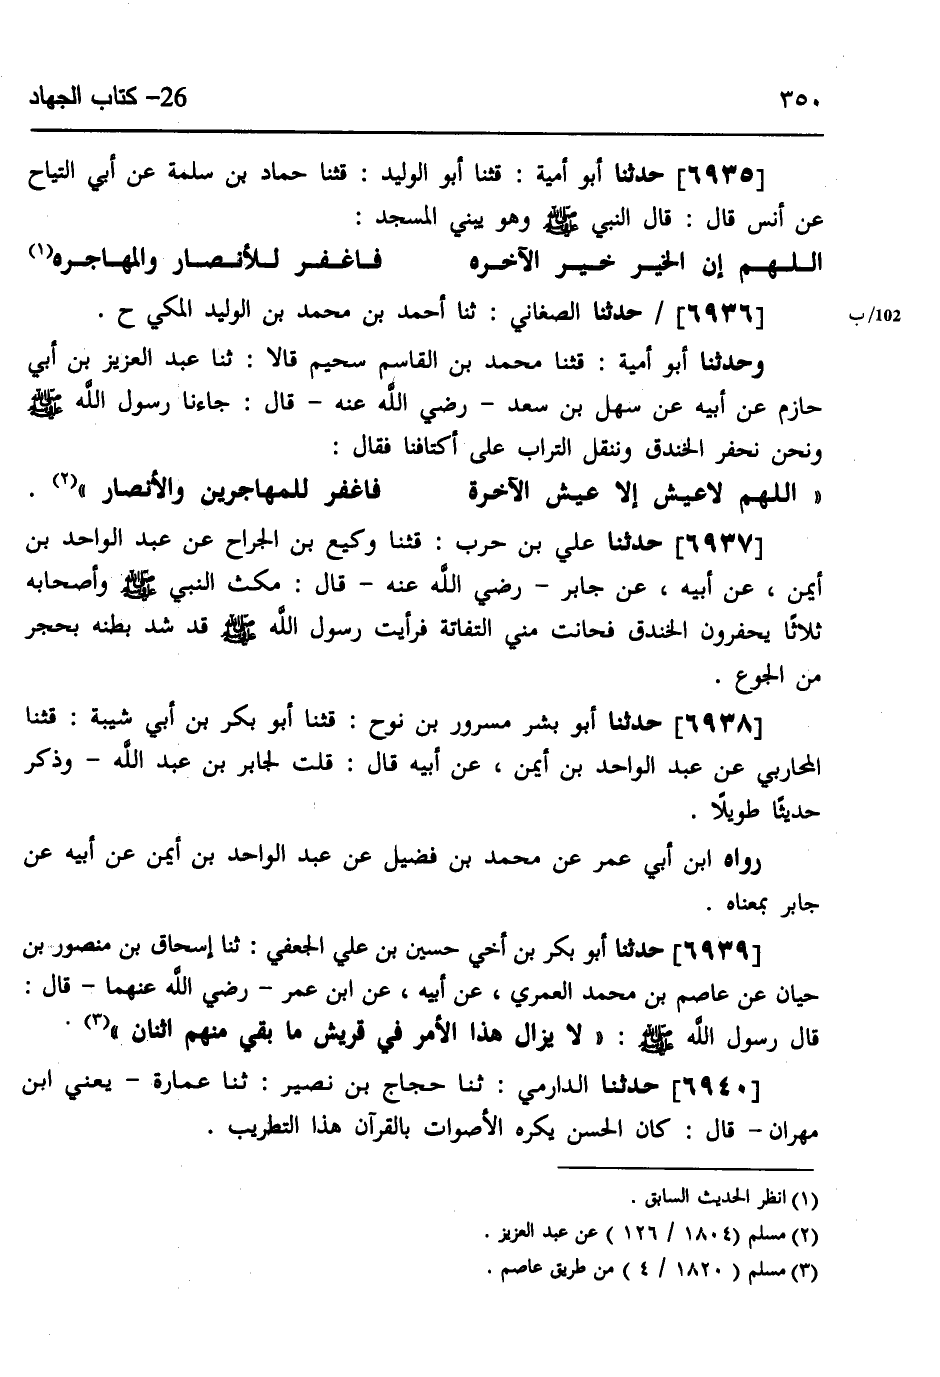 ٣٥٠ 26- كتاب الجهاد
[٦٩٣٥] حدثنا أبو أمية : قثنا أبو الوليد : قثنا حماد بن سلمة عن أبي التياح
عن أنس قال : قال النبي ﷺ وهو يبني المسجد :
اللـهـم إن الخيـر خـيـر الآخـره فـاغـفـر لـلأنـصـار والمهـاجـره(١)
[٦٩٣٦] / حدثنا الصغاني : ثنا أحمد بن محمد بن الوليد المكي ح .
102/ب
وحدثنا أبو أمية : قثنا محمد بن القاسم سحيم قالا : ثنا عبد العزيز بن أبي
حازم عن أبيه عن سهل بن سعد – رضي اللَّه عنه – قال : جاءنا رسول اللَّه ﷺ
ونحن نحفر الخندق وننقل التراب على أكتافنا فقال :
« اللهم لاعيش إلا عيش الآخرة فاغفر للمهاجرين والأنصار »(٢) .
[٦٩٣٧] حدثنا علي بن حرب : قثنا وكيع بن الجراح عن عبد الواحد بن
أيمن ، عن أبيه ، عن جابر – رضي اللَّه عنه – قال : مكث النبي ﷺ وأصحابه
ثلاثًا يحفرون الخندق فحانت مني التفاتة فرأيت رسول اللَّه ﷺ قد شد بطنه بحجر
من الجوع .
[٦٩٣٨] حدثنا أبو بشر مسرور بن نوح : قثنا أبو بكر بن أبي شيبة : قثنا
المحاربي عن عبد الواحد بن أيمن ، عن أبيه قال : قلت لجابر بن عبد اللَّه – وذكر
حديثًا طويلًا .
رواه ابن أبي عمر عن محمد بن فضيل عن عبد الواحد بن أيمن عن أبيه عن
جابر بمعناه .
[٦٩٣٩] حدثنا أبو بكر بن أخي حسين بن علي الجعفي : ثنا إسحاق بن منصور بن
حيان عن عاصم بن محمد العمري ، عن أبيه ، عن ابن عمر – رضي اللَّه عنهما – قال :
قال رسول اللَّه ﷺ : « لا يزال هذا الأمر في قريش ما بقي منهم اثنان »(٣) .
[٦٩٤٠] حدثنا الدارمي : ثنا حجاج بن نصير : ثنا عمارة – يعني ابن
مهران – قال : كان الحسن يكره الأصوات بالقرآن هذا التطريب .
(١) انظر الحديث السابق .
(٢) مسلم (١٨٠٤ / ١٢٦ ) عن عبد العزيز .
(٣) مسلم ( ١٨٢٠ / ٤ ) من طريق عاصم .